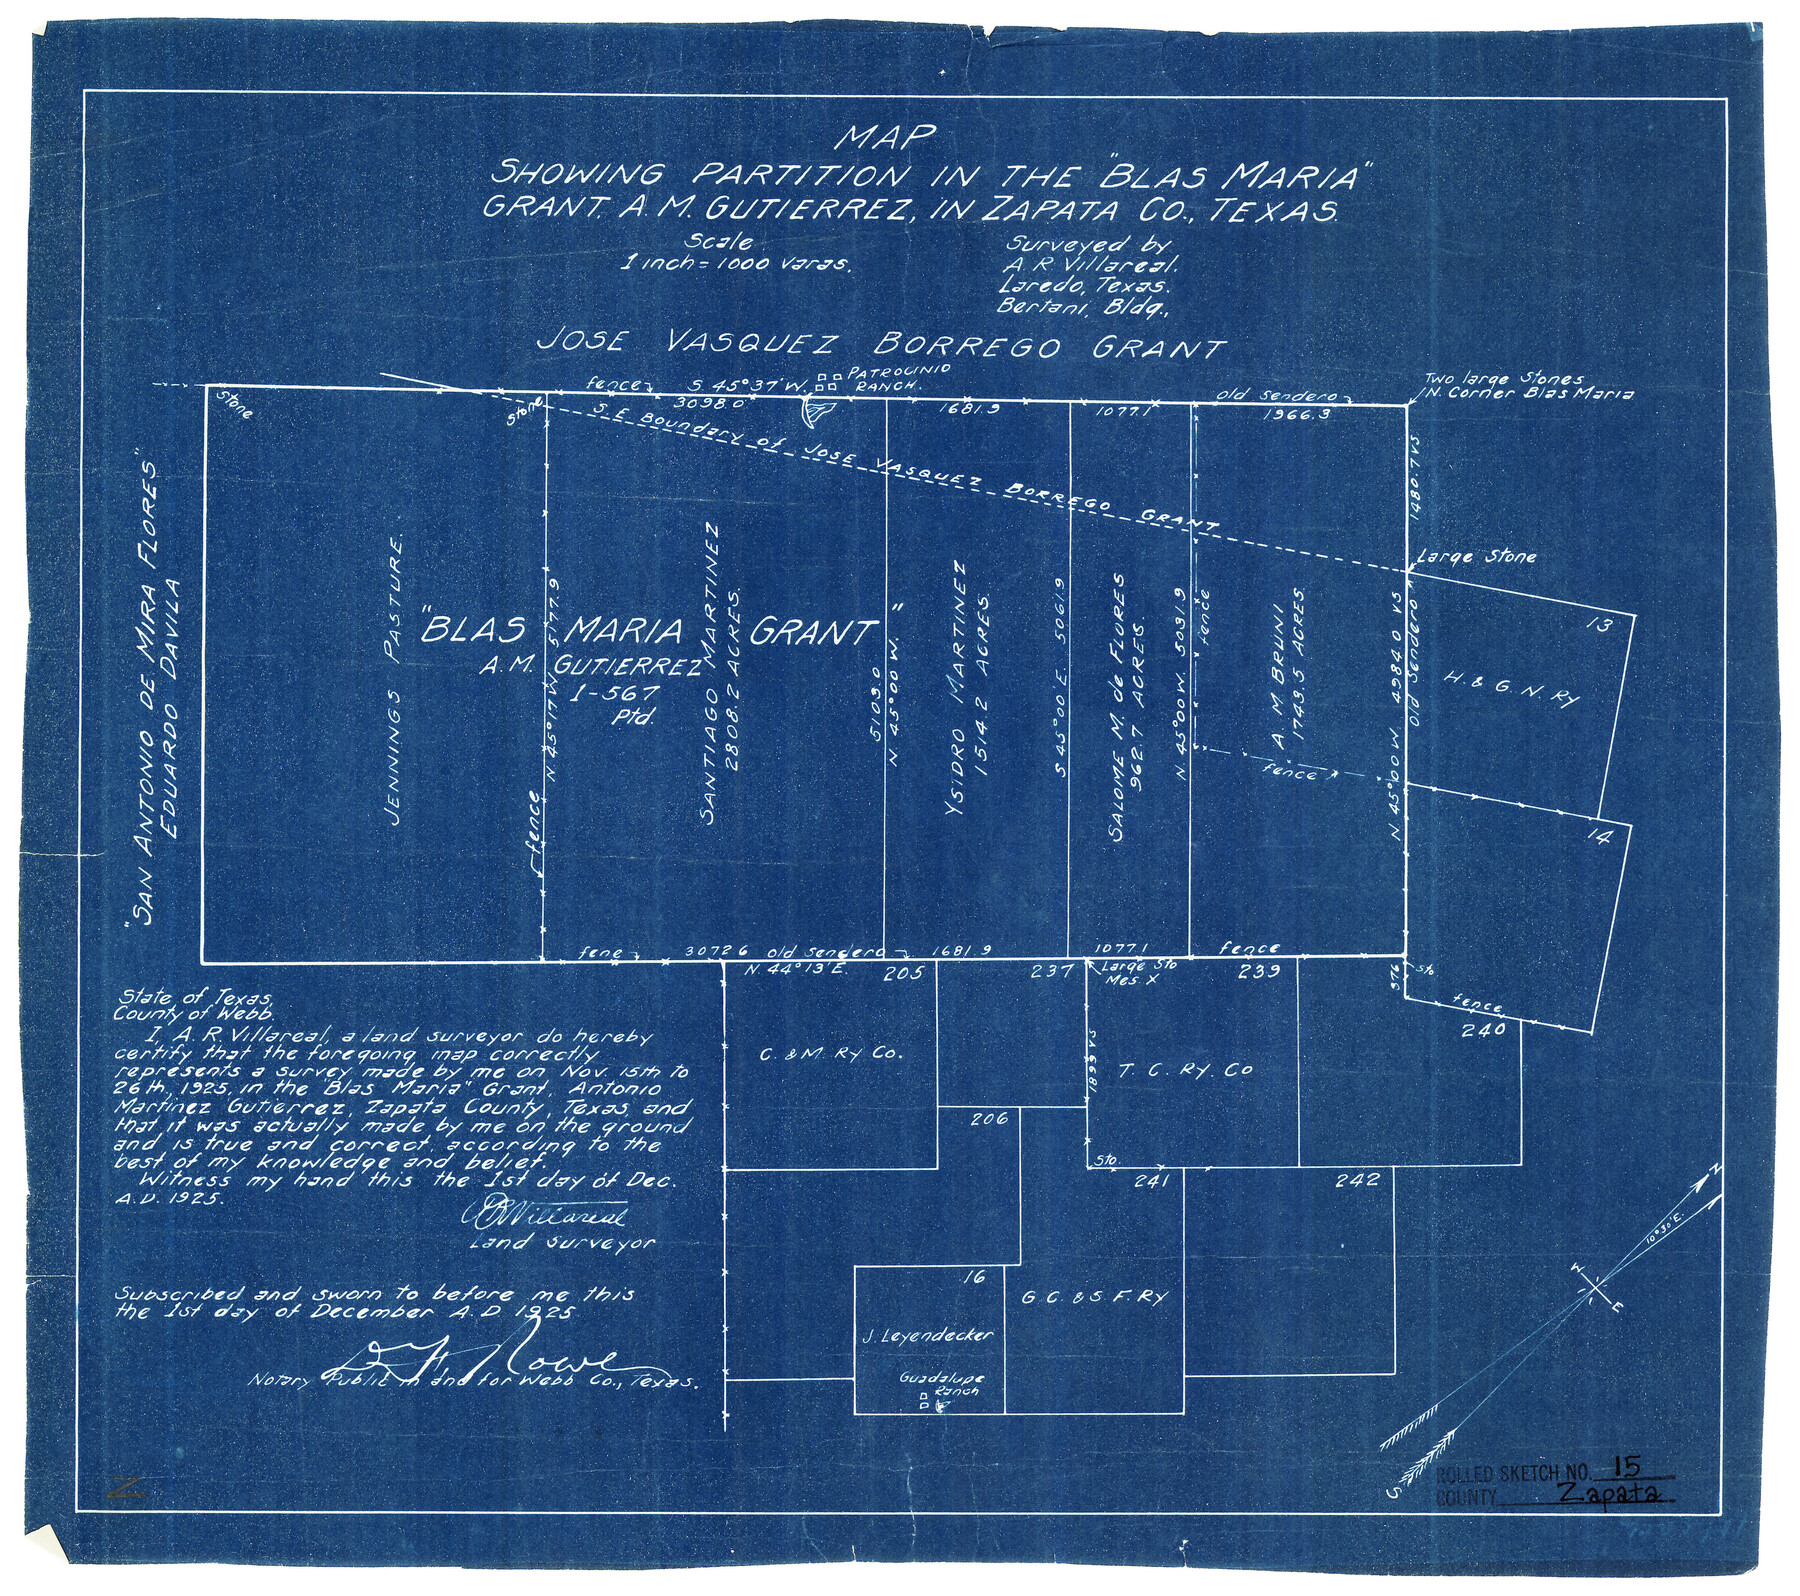 MAP
SHOWING PARTITION IN THE "BLAS MARIA"
GRANT. A. M. GUTIERREZ, IN ZAPATA CO., TEXAS.
Scale
1 inch = 1000 varas.
Surveyed by
A. R Villareal.
Laredo, Texas.
Bertani, Bldg.,
JOSE VASQUEZ BORREGO GRANT
fence
S. 45°37' W.
3098.0
PATROLINIO
RANCH.
1681.9
1077.1
old sendero
1966.3
Two large Stones
N. Corner Blas Maria
Stone
Stone
S. E. Boundary of JOSE VASQUEZ BORREGO GRANT
1480.7 VS
Large Stone
"SAN ANTONIO DE MIRA FLORES"
EDUARDO DAVILA
JENNINGS PASTURE.
"BLAS MARIA GRANT"
A. M. GUTIERREZ
1-567
Ptd.
N 45°17' W 5177.9
fence
SANTIAGO MARTINEZ
2808.2 ACRES.
5109.0
N 45°00 W.
YSIDRO MARTINEZ
1514.2 ACRES.
S 45°00' E. 5061.9
SALOME M. de FLORES
962.7 ACRES
N. 45°00 W. 5031.9
fence
A M BRUNI
1743.5 ACRES.
fence
N 45°00 W. 4984.0 VS
old sendero
13
H. & G. N. Ry
14
fene
3072.6
old sendero
N. 44°13' E.
1681.9
1077.1
fence
205
237
Large Sto
Mes. X
239
376
Sto
fence
240
C. & M. Ry Co.
1899 VS
T. C. Ry. Co
206
Sto.
241
242
16
J. Leyendecker
Guadalupe
Ranch
G. C. & S. F. Ry
State of Texas,
County of Webb.
I, A. R. Villareal, a land surveyor do hereby
certify that the foregoing map correctly
represents a survey made by me on Nov. 15th to
26th, 1925, in the "Blas Maria" Grant, Antonio
Martinez Gutierrez, Zapata County, Texas, and
that it was actually made by me on the ground
and is true and correct, according to the
best of my knowledge and belief.
Witness my hand this the 1st day of Dec.
A.D. 1925.
A R Villareal
Land Surveyor
Subscribed and sworn to before me this
the 1st day of December A. D 1925.
Rowe
Notary Public in and for Webb Co., Texas.
N
10°30' E.
W
E
S
Z
ROLLED SKETCH NO. 15
COUNTY Zapata